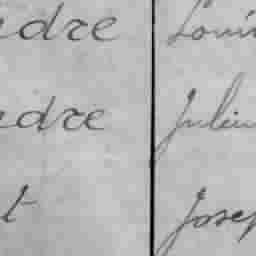 edre Loui
edre Julien
t Josep